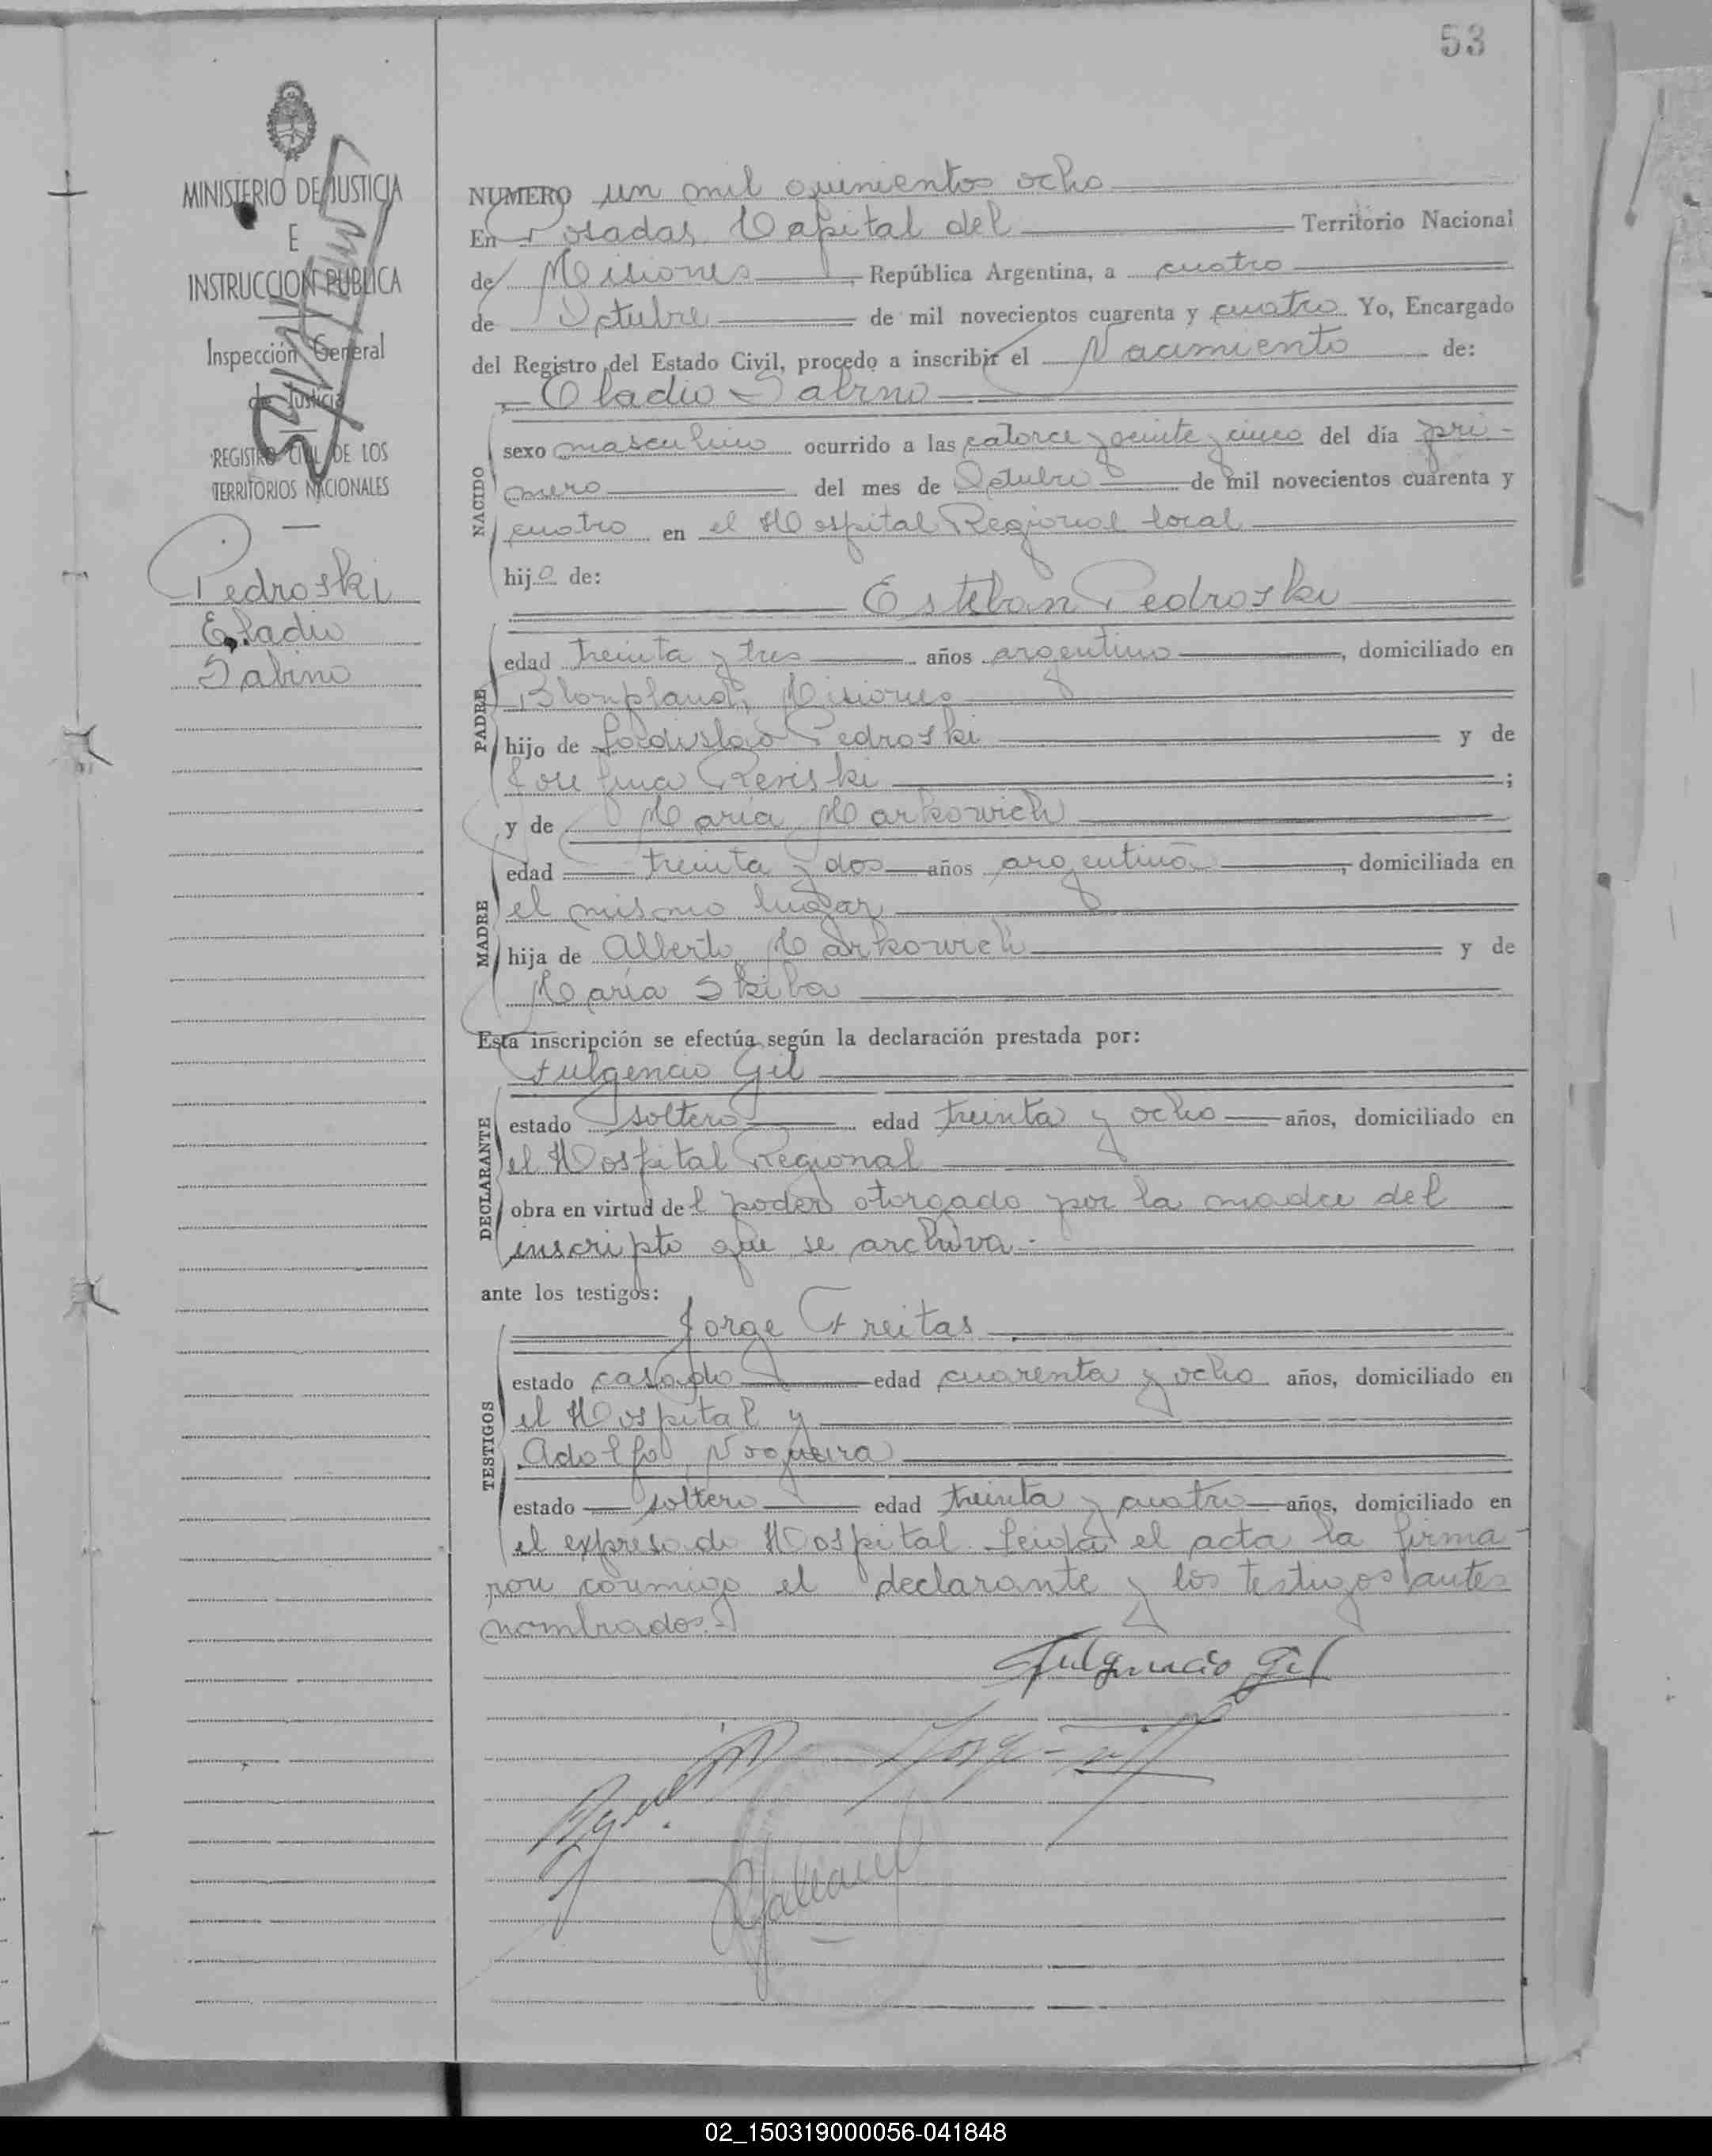 53
MINISTERIO DE JUSTICIA
E
INSTRUCCION PUBLICA
Inspección General
de Justicia
REGISTRO CIVIL DE LOS
TERRITORIOS NACIONALES
Pedroski
Eladio
Sabino
NUMERO un mil quinientos ocho
En Posadas, Capital del Territorio Nacional
de Misiones, República Argentina, a cuatro
de Octubre de mil novecientos cuarenta y cuatro Yo, Encargado
del Registro del Estado Civil, procedo a inscribir el Nacimiento de:
Eladio Sabino
NACIDO
sexo masculino ocurrido a las catorce y veinte y cinco del día pri-
mero del mes de Octubre de mil novecientos cuarenta y
cuatro en el Hospital Regional local
hijo de:
Esteban Pedroski
PADRE
edad treinta y tres años argentino, domiciliado en
Blonpland, Misiones
hijo de Ladislao Pedroski y de
Josefina Reniski;
y de María Markowich
MADRE
edad treinta y dos años argentina, domiciliada en
el mismo lugar
hija de Alberto Markowich y de
María Skiba
Esta inscripción se efectúa según la declaración prestada por:
Fulgencio Gil
DECLARANTE
estado soltero edad treinta y ocho años, domiciliado en
el Hospital Regional
obra en virtud del poder otorgado por la madre del
inscripto que se archiva.
ante los testigos:
Jorge Freitas
TESTIGOS
estado casado edad cuarenta y ocho años, domiciliado en
el Hospital y
Adolfo Nogueira
estado soltero edad treinta y cuatro años, domiciliado en
el expresado Hospital. Leida el acta la firma-
ron conmigo el declarante y los testigos antes
nombrados.-
Fulgencio Gil
02_150319000056-041848